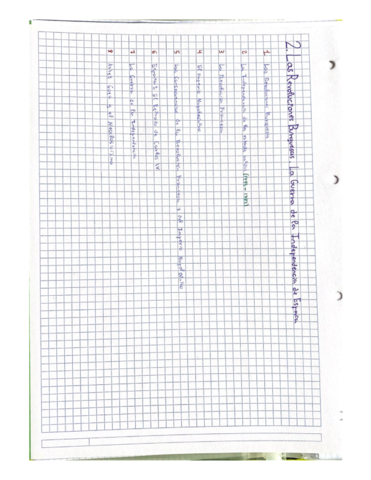 2. Las Revoluciones Burguesas. La Guerra de la Independencia de España.
1 Las Revoluciones Burguesas
2 La Independencia de los
3 La Revolución Francesa
4 El Imperio Napoleónico
5 Las Consecuencias de la Revolución Francesa y del Imperio Napoleónico
6 España: El Reinado de Carlos IV
7 La Guerra de la Independencia
8 Arte: Goya y el Neoclasicismo